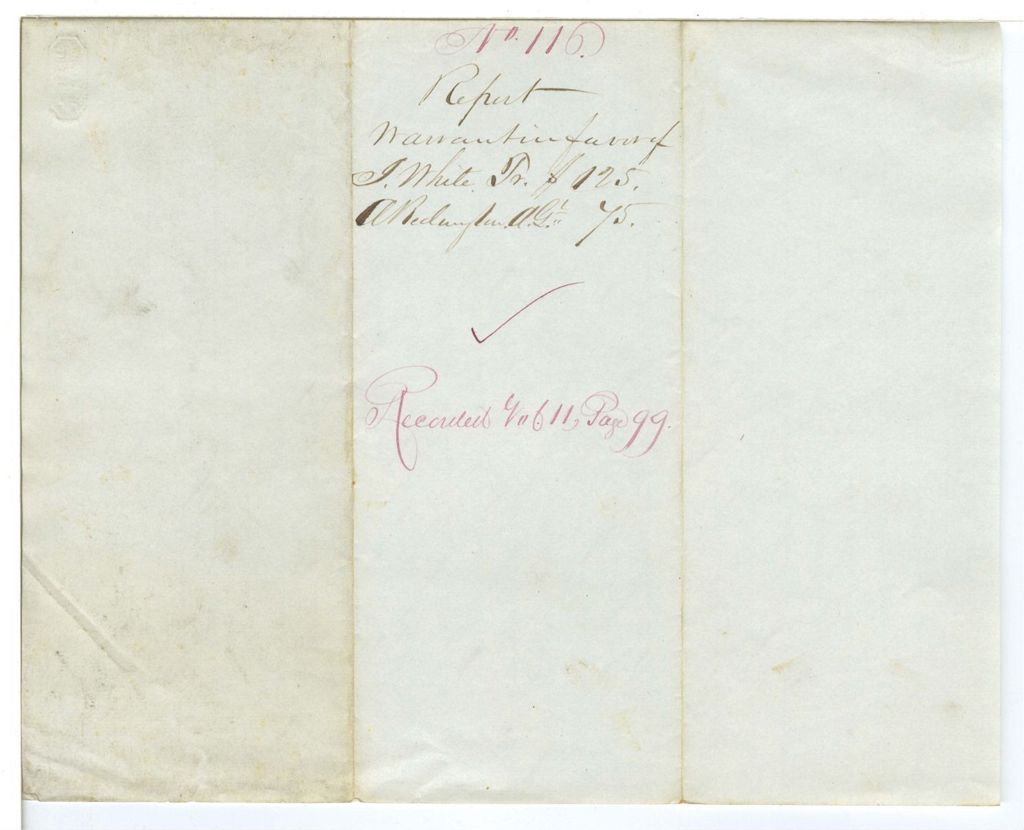 No. 116.
Report
Warrant in favor of
J. White Tr. $ 125.
A Redington A.Gt. 75.
Recorded Vol. 11, Page 99.